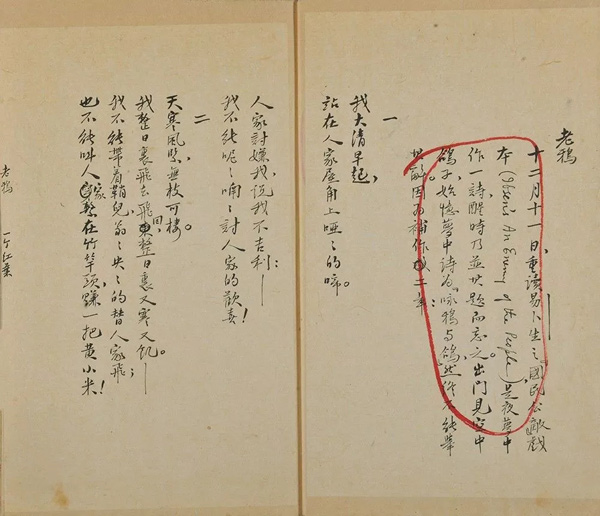 老鴉
十二月十一日,重讀易卜生之「國民公敵」戲
本(Ibsen's An Enemy of the People),是夜夢中
作一詩,醒時乃並其題而忘之。出門見空中
鴿子,始憶夢中詩為「咏鴉與鴿」,然終不能舉
其詞,因為補作成二章:
一
我大清早起,
站在人家屋角上啞ミ的啼。
人家討嫌我,説我不吉利:—
我不能呢ミ喃ミ討人家的歡喜!
二
天寒風緊,無枝可棲。
我整日裏飛去飛回,整日裏又寒又飢。—
我不能帶着鞘兒翁ミ央ミ的替人家飛;
也不能叫人家繫在竹竿頭,賺一把黃小米!
老鴉